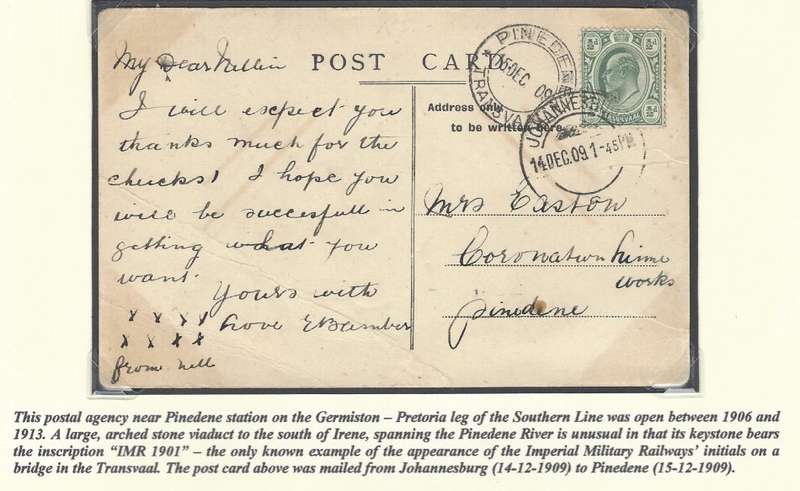 My Dear Nellie
I will expect you
thanks much for the
chucks! I hope you
will be succesfull in
getting what you
want.
Yours with
x x x x love E Bamber
x x x x
from Nell
POST CARD
Address only
to be written here.
PINEDENE
15 DEC 09
TRANSVAAL
JOHANNESB
14 DEC. 09. 1-45 PM
½d
½d
TRANSVAAL
Mrs Easton
Coronation Lime
works
Pinedene
This postal agency near Pinedene station on the Germiston – Pretoria leg of the Southern Line was open between 1906 and
1913. A large, arched stone viaduct to the south of Irene, spanning the Pinedene River is unusual in that its keystone bears
the inscription “IMR 1901” – the only known example of the appearance of the Imperial Military Railways’ initials on a
bridge in the Transvaal. The post card above was mailed from Johannesburg (14-12-1909) to Pinedene (15-12-1909).